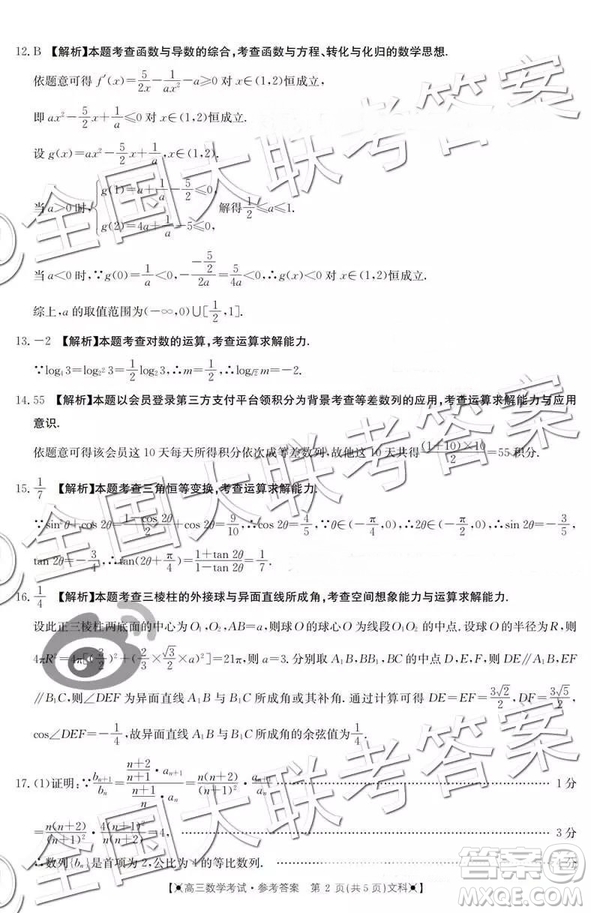 12. B 【解析】本题考查函数与导数的综合,考查函数与方程、转化与化归的数学思想.
依题意可得 f′(x)=5/(2x)-1/(ax²)-a≥0 对 x∈(1,2)恒成立,
即 ax²-5/2 x+1/a≤0 对 x∈(1,2)恒成立.
设 g(x)=ax²-5/2 x+1/a,
当 a>0 时,{g(1)=a+1/a-5/2≤0, g(2)=4a+1/a-5≤0, 解得1/2≤a≤1.
当 a<0 时,∵g(0)=1/a<0,5/2/(2a)=5/(4a)<0,∴g(x)<0 对 x∈(1,2)恒成立.
综上,a 的取值范围为(-∞,0)∪[1/2,1].
13. -2 【解析】本题考查对数的运算,考查运算求解能力.
14. 55 【解析】本题以会员登录第三方支付平台领积分为背景考查等差数列的应用,考查运算求解能力与应用
意识.
依题意可得该会员这 10 天每天所得积分依次成等差数列,故他这 10 天共得(1+10)×10/2=55 积分.
15. 1/7 【解析】本题考查三角恒等变换,考查运算求解能力.
∴cos 2θ=4/5.∵θ∈(-π/4,0),∴2θ∈(-π/2,0),∴sin 2θ=-3/5,
tan 2θ=-3/4,∴tan(2θ+π/4)=(1+tan 2θ)/(1-tan 2θ)=1/7.
16. 1/4 【解析】本题考查三棱柱的外接球与异面直线所成角,考查空间想象能力与运算求解能力.
设此正三棱柱两底面的中心为 O₁,O₂,AB=a,则球 O 的球心 O 为线段 O₁O₂ 的中点.设球 O 的半径为 R,则
=21π,则 a=3.分别取 AB,BB₁,BC 的中点 D,E,F,则 DE∥A₁B,EF
∥B₁C,则∠DEF 为异面直线 A₁B 与 B₁C 所成角或其补角.依题意可得 DE=EF=3√2/2,DF=3√5/2,
cos∠DEF=-1/4,故异面直线 A₁B 与 B₁C 所成角的余弦值为1/4.
17. (1)证明:∵bₙ₊₁/bₙ=((n+2)/(n+1)·aₙ₊₁)/((n+1)/n·aₙ)=n(n+2)/(n+1)²·aₙ₊₁/aₙ 1 分
=n(n+2)/(n+1)²·4(n+1)²/(n(n+2))=4, 3 分
∴数列{bₙ}是首项为 2,公比为 4 的等比数列.
【高三数学考试·参考答案 第 2 页(共 5 页)文科】
全国大联考答案
答案圈